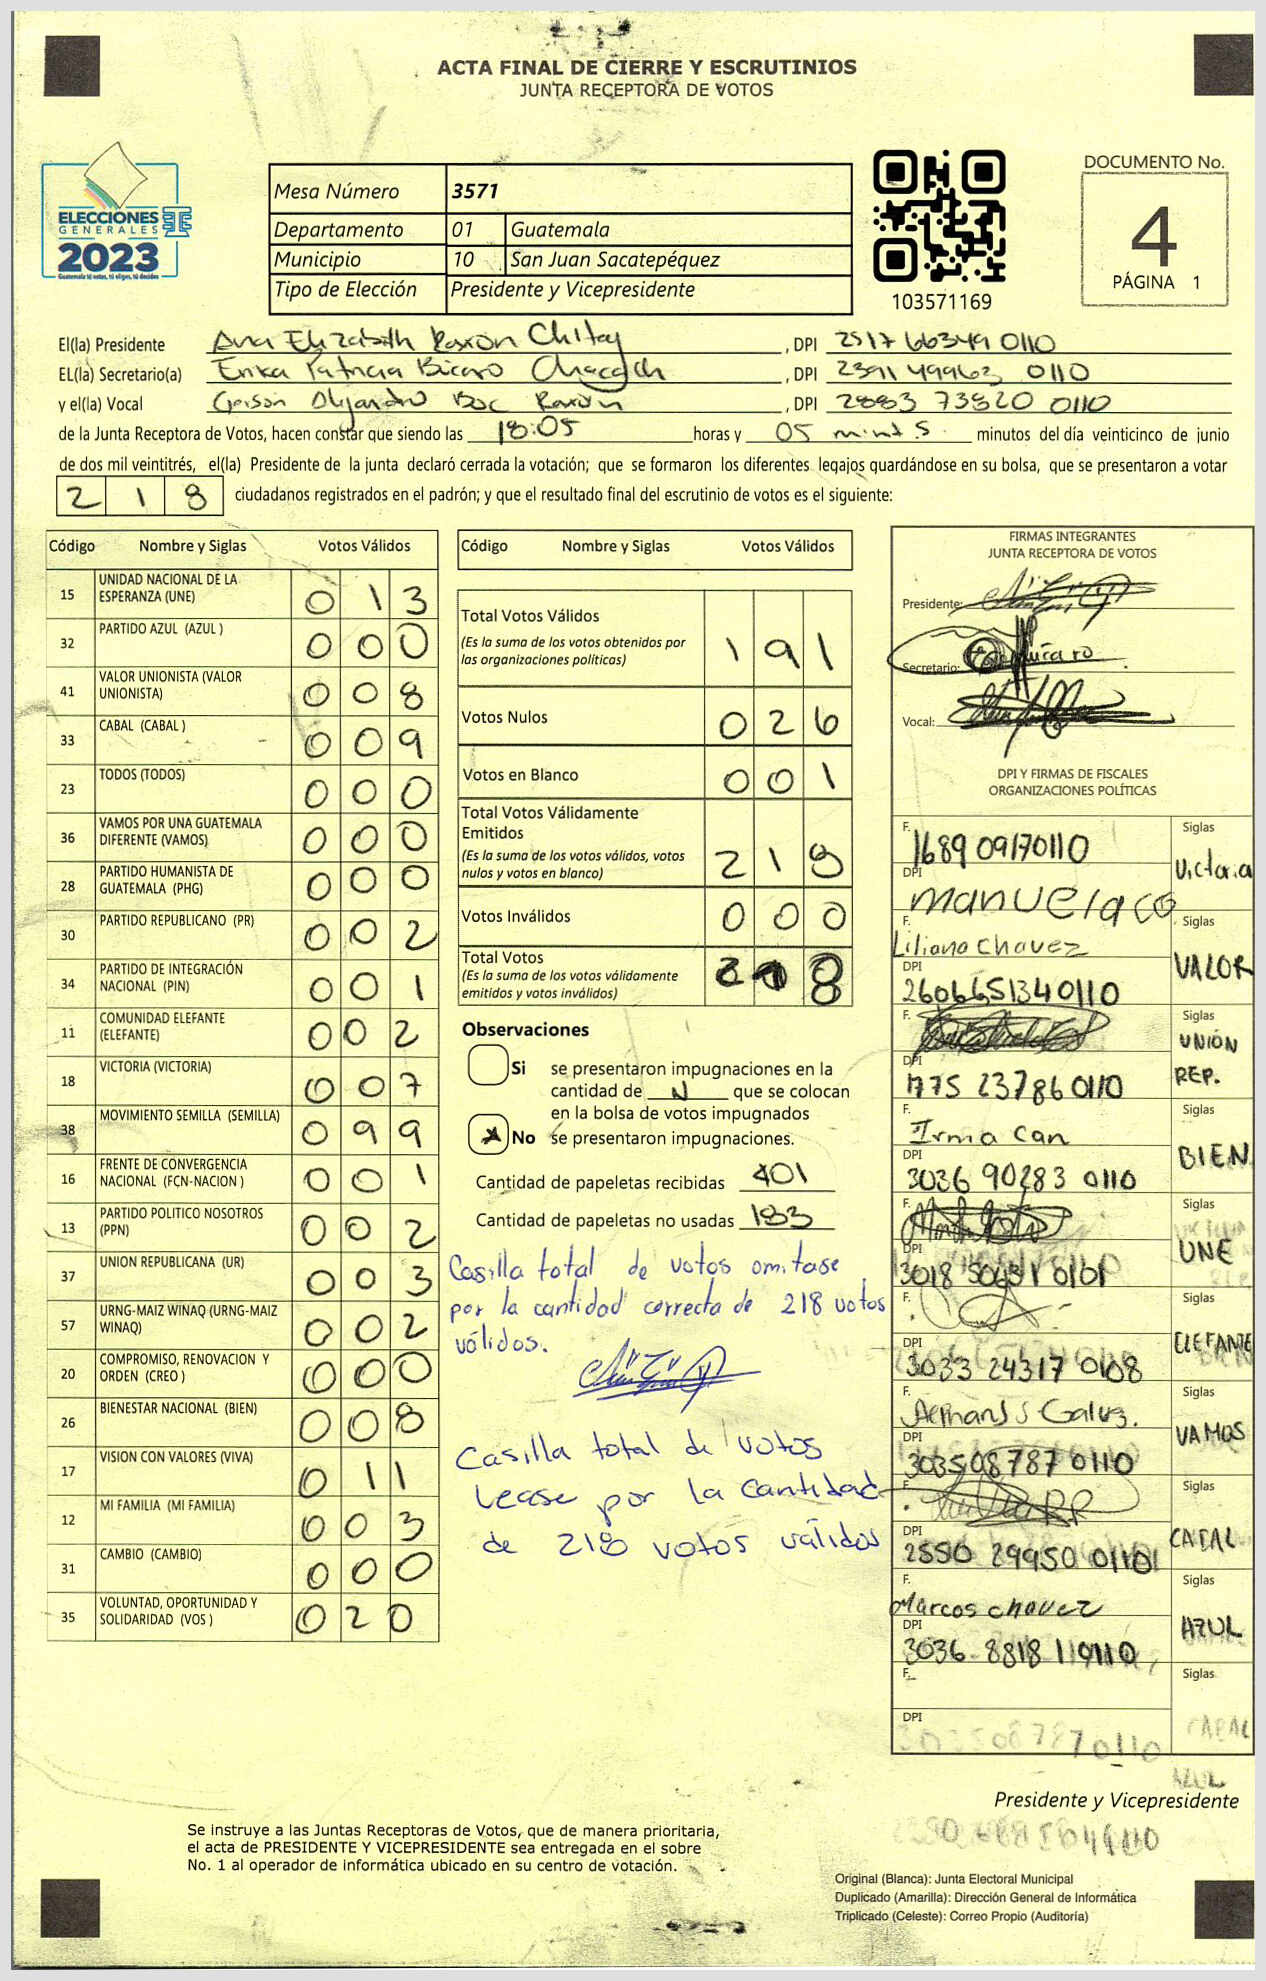 ACTA FINAL DE CIERRE Y ESCRUTINIOS
JUNTA RECEPTORA DE VOTOS
ELECCIONES
GENERALES
2023
Guatemala tú votas, tú eliges, tú decides
Mesa Número 3571
Departamento 01 Guatemala
Municipio 10 San Juan Sacatepéquez
Tipo de Elección Presidente y Vicepresidente
103571169
DOCUMENTO No.
4
PÁGINA 1
El(la) Presidente Ana Elizabeth Raxón Chitay, DPI 2517 66349 0110
EL(la) Secretario(a) Erika Patricia Búcaro Chacach, DPI 2391 49963 0110
y el(la) Vocal Gerson Alejandro Boc Raxón, DPI 2883 73820 0110
de la Junta Receptora de Votos, hacen constar que siendo las 18:05 horas y 05 mint.s minutos del día veinticinco de junio
de dos mil veintitrés, el(la) Presidente de la junta declaró cerrada la votación; que se formaron los diferentes legajos guardándose en su bolsa, que se presentaron a votar
218 ciudadanos registrados en el padrón; y que el resultado final del escrutinio de votos es el siguiente:
Código Nombre y Siglas Votos Válidos
15 UNIDAD NACIONAL DE LA ESPERANZA (UNE) 013
32 PARTIDO AZUL (AZUL ) 000
41 VALOR UNIONISTA (VALOR UNIONISTA) 008
33 CABAL (CABAL ) 009
23 TODOS (TODOS) 000
36 VAMOS POR UNA GUATEMALA DIFERENTE (VAMOS) 000
28 PARTIDO HUMANISTA DE GUATEMALA (PHG) 000
30 PARTIDO REPUBLICANO (PR) 002
34 PARTIDO DE INTEGRACIÓN NACIONAL (PIN) 001
11 COMUNIDAD ELEFANTE (ELEFANTE) 002
18 VICTORIA (VICTORIA) 007
38 MOVIMIENTO SEMILLA (SEMILLA) 099
16 FRENTE DE CONVERGENCIA NACIONAL (FCN-NACION ) 001
13 PARTIDO POLITICO NOSOTROS (PPN) 002
37 UNION REPUBLICANA (UR) 003
57 URNG-MAIZ WINAQ (URNG-MAIZ WINAQ) 002
20 COMPROMISO, RENOVACION Y ORDEN (CREO ) 000
26 BIENESTAR NACIONAL (BIEN) 008
17 VISION CON VALORES (VIVA) 011
12 MI FAMILIA (MI FAMILIA) 003
31 CAMBIO (CAMBIO) 000
35 VOLUNTAD, OPORTUNIDAD Y SOLIDARIDAD (VOS ) 020
Código Nombre y Siglas Votos Válidos
Total Votos Válidos 191
(Es la suma de los votos obtenidos por
las organizaciones políticas)
Votos Nulos 026
Votos en Blanco 001
Total Votos Válidamente
Emitidos 218
(Es la suma de los votos válidos, votos
nulos y votos en blanco)
Votos Inválidos 000
Total Votos 218
(Es la suma de los votos válidamente
emitidos y votos inválidos)
Observaciones
Si se presentaron impugnaciones en la
cantidad de N que se colocan
en la bolsa de votos impugnados
X No se presentaron impugnaciones.
Cantidad de papeletas recibidas 401
Cantidad de papeletas no usadas 183
Casilla total de votos omitase
por la cantidad correcta de 218 votos
válidos.
Casilla total de votos
Lease por la cantidad
de 218 votos válidos
FIRMAS INTEGRANTES
JUNTA RECEPTORA DE VOTOS
Presidente:
Secretario:
Vocal:
DPI Y FIRMAS DE FISCALES
ORGANIZACIONES POLÍTICAS
F. 1689 09170110 Siglas Victoria
DPI manuelaco
F. Liliana Chavez Siglas VALOR
DPI 260665134 0110
F. Siglas UNIÓN REP.
DPI 1775 23786 0110
F. Irma Can Siglas BIEN
DPI 3036 90283 0110
F. Siglas UNE
DPI 3018
F. Siglas ELEFANTE
DPI 3033 24317 0108
F. Siglas VAMOS
DPI 303508787 0110
F. Siglas CABAL
DPI 2550 29950 0110
F. Marcos chavez Siglas AZUL
DPI 3036 8818 110110
F. Siglas
DPI
CABAL
AZUL
Presidente y Vicepresidente
Se instruye a las Juntas Receptoras de Votos, que de manera prioritaria,
el acta de PRESIDENTE Y VICEPRESIDENTE sea entregada en el sobre
No. 1 al operador de informática ubicado en su centro de votación.
Original (Blanca): Junta Electoral Municipal
Duplicado (Amarilla): Dirección General de Informática
Triplicado (Celeste): Correo Propio (Auditoría)